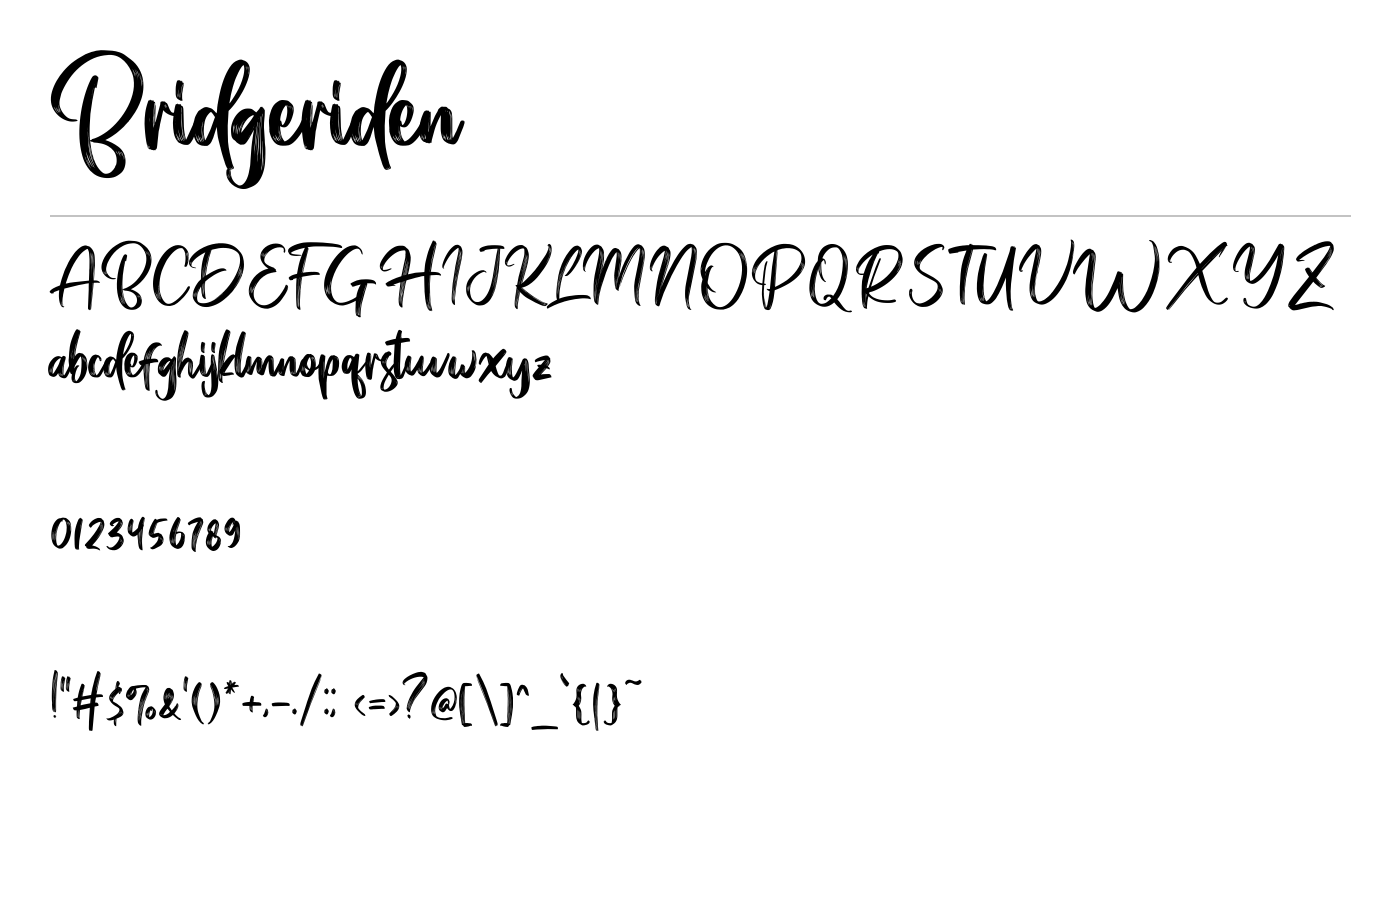 Bridgeriden
ABCDEFGHIJKLMNOPQRSTUVWXYZ
abcdefghijklmnopqrstuvwxyz
0123456789
!"#$%&'()*+,-./:; <=>?@[\]^_`{|}~